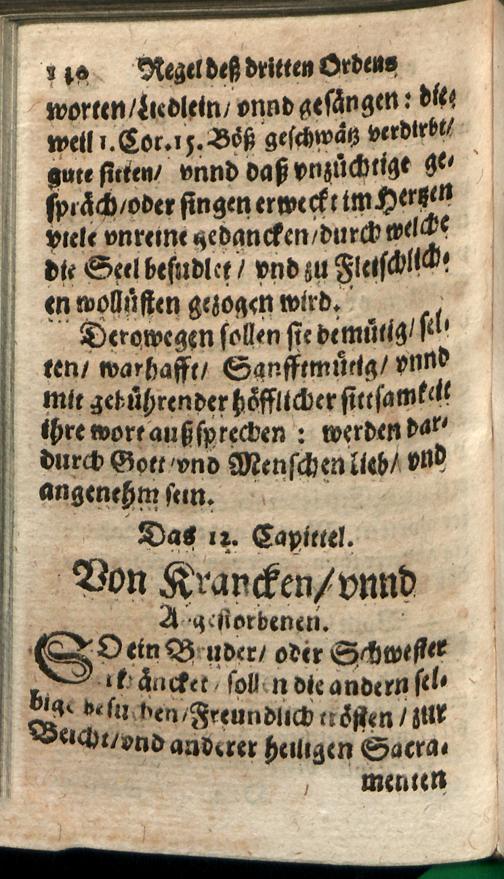 140 Regel deß dritten Ordens
worten/Liedlein/ vnnd gesängen: die-
weil 1. Cor. 15. Böß geschwätz verdirbt/
gute sitten/ vnnd daß vnzüchtige ge-
spräch/oder singen erweckt im Hertzen
viele vnreine gedancken/durch welche
die Seel besudlet/ vnd zu Fleischlich-
en wollüsten gezogen wird.
Derowegen sollen sie demütig/ sel-
ten/ warhafft/ Sanfftmütig/ vnnd
mit gebührender höfflicher sittsamkeit
ihre wort außsprechen: werden dar-
durch Gott/vnd Menschen lieb/ vnd
angenehm sein.
Das 12. Capittel.
Von Krancken/ vnnd
Abgestorbenen.
SO ein Bruder/ oder Schwester
erkräncket/ sollen die andern sel-
bige besuchen/Freundlich trösten/ zur
Beicht/vnd anderer heiligen Sacra-
menten